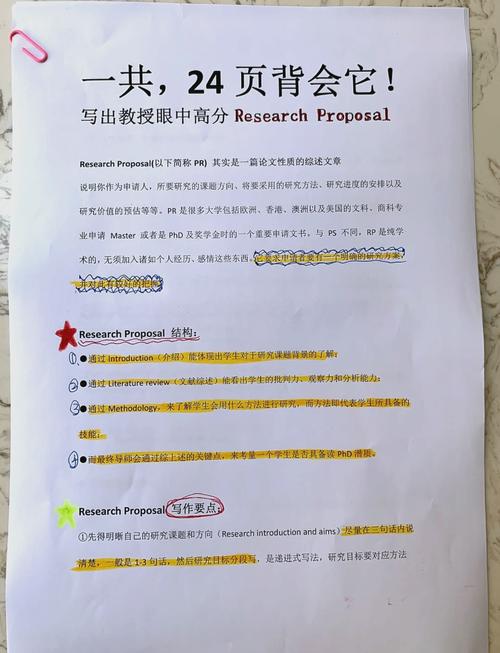 一共，24 页背会它！
写出教授眼中高分 Research Proposal
Research Proposal(以下简称 PR) 其实是一篇论文性质的综述文章
说明你作为申请人，所要研究的课题方向、将要采用的研究方法、研究进度的安排以及
研究价值的预估等等。PR 是很多大学包括欧洲、香港、澳洲以及美国的文科、商科专
业申请 Master 或者是 PhD 及奖学金时的一个重要申请文书，与 PS 不同，RP 是纯学
术的，无须加入诸如个人经历、感情这些东西。它要求申请者要有一个明确的研究方案，
并对此有较好的把握
Research Proposal 结构：
① ●通过 Introduction（介绍）能体现出学生对于研究课题背景的了解；
② ●通过 Literature review（文献综述）能看出学生的批判力、观察力和分析能力；
③ ●通过 Methodology，来了解学生会用什么方法进行研究，而方法即代表学生所具备的
技能；
④ ●而最终导师会通过综上述的关键点，来考量一个学生是否具备读 PhD 潜质。
Research Proposal 写作要点：
①先得明晰自己的研究课题和方向（Research introduction and aims）尽量在三句话内说
清楚，一般是 1-3 句话，然后研究目标分段写，是递进式写法，研究目标要对应方法